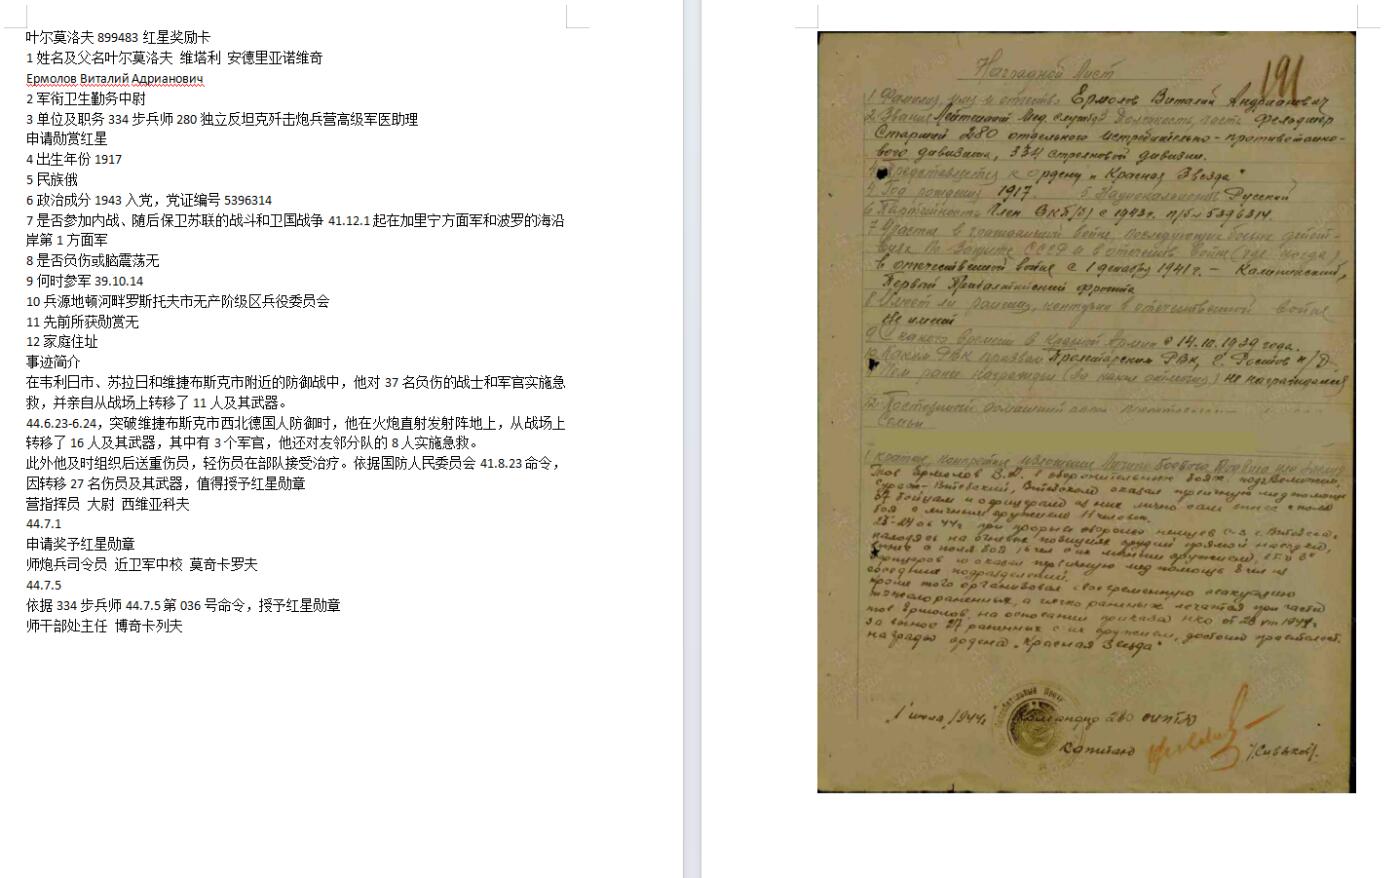 叶尔莫洛夫 899483 红星奖励卡
1 姓名及父名叶尔莫洛夫 维塔利 安德里亚诺维奇
Ермолов Виталий Адрианович
2 军衔卫生勤务中尉
3 单位及职务 334 步兵师 280 独立反坦克歼击炮兵营高级军医助理
申请勋赏红星
4 出生年份 1917
5 民族俄
6 政治成分 1943 入党，党证编号 5396314
7 是否参加内战、随后保卫苏联的战斗和卫国战争 41.12.1 起在加里宁方面军和波罗的海沿
岸第 1 方面军
8 是否负伤或脑震荡无
9 何时参军 39.10.14
10 兵源地顿河畔罗斯托夫市无产阶级区兵役委员会
11 先前所获勋赏无
12 家庭住址
事迹简介
在韦利日市、苏拉日和维捷布斯克市附近的防御战中，他对 37 名负伤的战士和军官实施急
救，并亲自从战场上转移了 11 人及其武器。
44.6.23-6.24，突破维捷布斯克市西北德国人防御时，他在火炮直射发射阵地上，从战场上
转移了 16 人及其武器，其中有 3 个军官，他还对友邻分队的 8 人实施急救。
此外他及时组织后送重伤员，轻伤员在部队接受治疗。依据国防人民委员会 41.8.23 命令，
因转移 27 名伤员及其武器，值得授予红星勋章
营指挥员 大尉 西维亚科夫
44.7.1
申请奖予红星勋章
师炮兵司令员 近卫军中校 莫奇卡罗夫
44.7.5
依据 334 步兵师 44.7.5 第 036 号命令，授予红星勋章
师干部处主任 博奇卡列夫
191
Наградной Лист
1 Фамилия, имя и отчество Ермолов Виталий Андрианович
2 Звание Лейтенант Мед. службы 3 Должность, часть Фельдшер
Старший 280 отдельного истребительно-противотанко-
вого дивизиона, 334 стрелковой дивизии.
Представляется к ордену "Красная Звезда"
4 Год рождения 1917 5 Национальность Русский
6 Партийность Член ВКП(б) с 1943г. п/б 5396314.
7 Участие в гражданской войне, последующих боевых дейст-
виях по защите СССР и в отечеств. войне (где, когда)
в отечественной войне с 1 декабря 1941г. - Калининский,
Первый Прибалтийский фронта
8 Имеет ли ранения, контузии в отечественной войне
Не имеет
9 С какого времени в Красной Армии с 14.10.1939 года.
10 Каким РВК призван Пролетарским РВК, г. Ростов н/Д.
Чем ранее награжден (за какие отличия) не награждался
12. Постоянный домашний адрес
Семьи
1 краткое, конкретное изложение личного боевого подвига
Тов. Ермолов В.А. в оборонительных боях под
Витебском оказал первичную мед помощь
37 бойцам и офицерам из них лично сам вынес с поля
боя с личным оружием 11 человек.
23-24.06.44г. при прорыве обороны немцев с-з г. Витебска,
находясь на огневых позициях орудий прямой наводки,
вынес с поля боя 16 чел с их личным оружием,
офицеров и оказал первичную мед помощь 8 чел из
соседних подразделений.
кроме того организовал своевременную эвакуацию
тяжелораненных, а легко раненных лечатся при части
тов Ермолов, на основании приказа НКО от 23
за вынос 27 раненных с их оружием, достоин
награды ордена "Красная Звезда"
1 июля 1944г. Командир 280 ОИПТД
Капитан /Сивяков/.